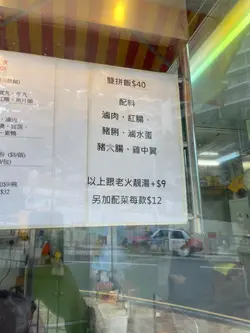 雙拼飯$40
配料
滷肉、紅腸
豬脷、滷水蛋
豬大腸、雞中翼
以上跟老火靚湯+$9
另加配菜每款$12